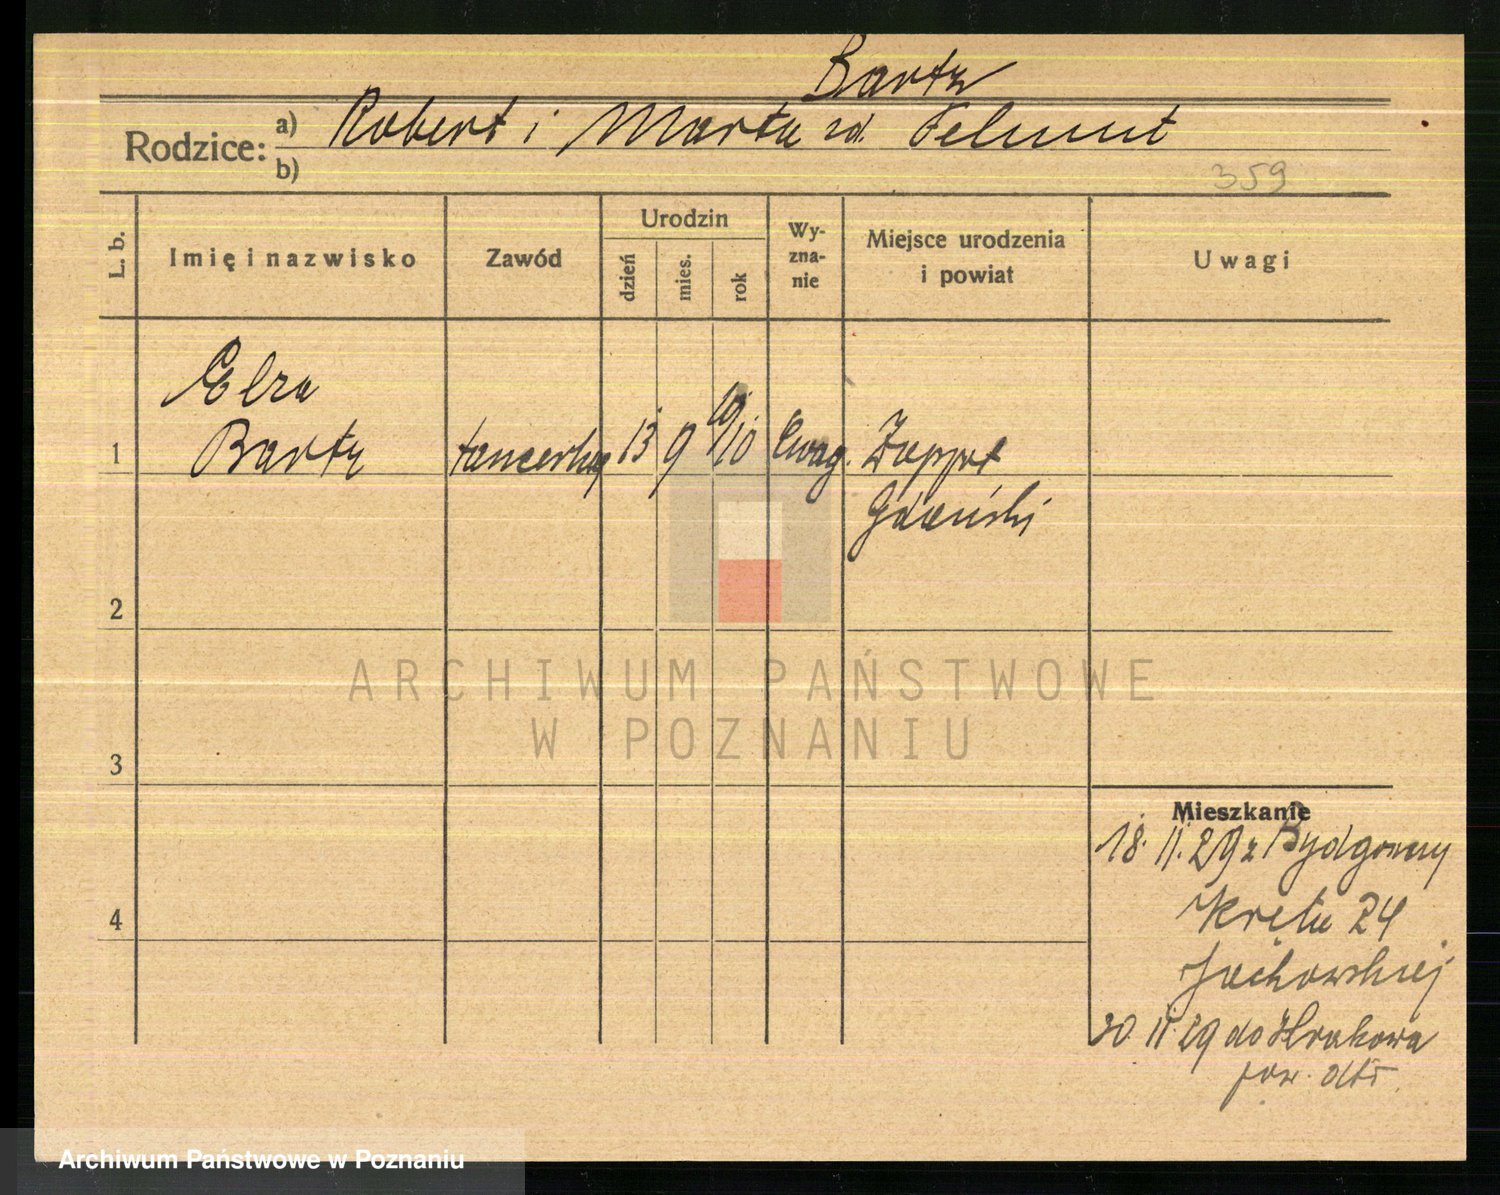 Bartz
Rodzice: a) Robert i Marta zd.
b)
359
L. b.
Imię i nazwisko
Zawód
Urodzin
dzień
mies.
rok
Wy-
zna-
nie
Miejsce urodzenia
i powiat
Uwagi
Elza
1 Bartz tancerka 13 9 10 Ewag. Zoppot
Gdański
2
ARCHIWUM PAŃSTWOWE
W POZNANIU
3
Mieszkanie
18. 11. 29 z Bydgoszczy
4 Kręta 24
30. 11 29 do Krakowa
Archiwum Państwowe w Poznaniu